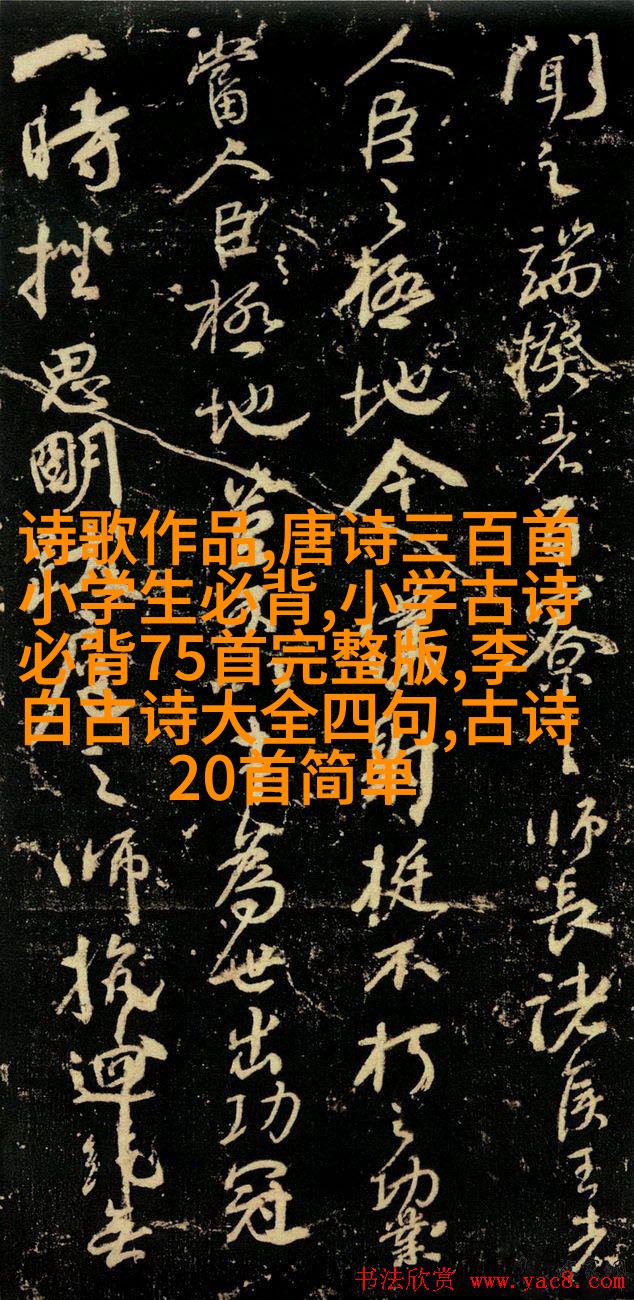 聞之端揆者百寮之師長諸侯王者
人臣之極地今射挺不朽之功業
當人臣之極地豈為世出功冠
一時挫思明之師抗迴紇無
诗歌作品,唐诗三百首
小学生必背,小学古诗
必背75首完整版,李
白古诗大全四句,古诗
20首简单
书法欣赏 www.yac8.com